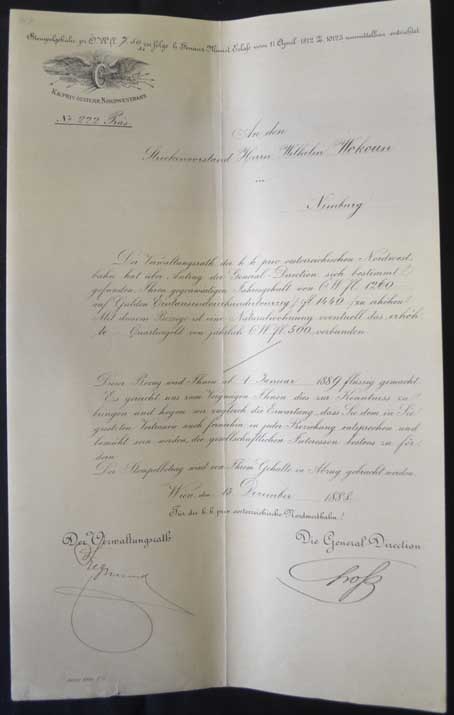 Stempelgebühr pr Ö.W.fl. 7.50 zu folge h. Finanz Minist. Erlass vom 11 April 1872 Z. 10125 unmittelbar entrichtet
K.K. PRIV. OESTERR. NORDWESTBAHN
No 222 Präs
An den
Streckenvorstand Herrn Wilhelm Wokoun
Nimburg
Der Verwaltungsrath der k k priv oesterreichischen Nordwest
bahn hat über Antrag der General-Direction sich bestimmt
gefunden, Ihren gegenwärtigen Jahresgehalt von Ö W fl 1260
auf Gulden Eintausendvierhundertvierzig fl 1440 zu erhöhen
Mit diesem Bezuge ist eine Naturalwohnung eventuell das erhöh
te Quartiergeld von jährlich Ö W. fl. 500 verbunden
Dieser Bezug wird Ihnen ab 1 Januar 1889 flüssig gemacht
Es gereicht uns zum Vergnügen Ihnen dies zur Kenntniss zu
bringen und hegen wir zugleich die Erwartung, dass Sie dem in Sie
gesetzten Vertrauen auch fernerhin in jeder Beziehung entsprechen und
bemüht sein werden, die gesellschaftlichen Interessen bestens zu för
dern
Der Stempelbetrag wird von Ihrem Gehalte in Abzug gebracht werden.
Wien, den 15 December 1888.
Für die k k priv oesterreichische Nordwestbahn!
Der Verwaltungsrath
Die General-Direction